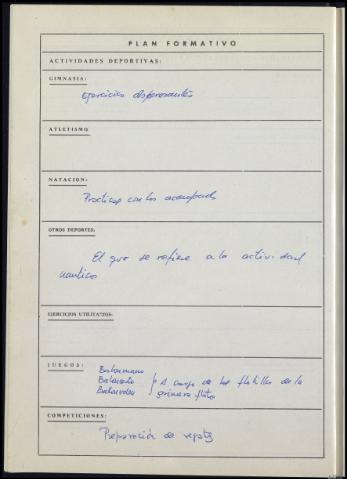 PLAN FORMATIVO
ACTIVIDADES DEPORTIVAS:
GIMNASIA:
Ejercicios
ATLETISMO
NATACION:
Practicas con los acampados
OTROS DEPORTES:
El que se refiere a la actividad
nautica
EJERCICIOS UTILITARIOS:
JUEGOS:
Balonmano
Baloncesto } A cargo de las flotillas de la
Balonvolea primera flota
COMPETICIONES:
Preparación de regatas